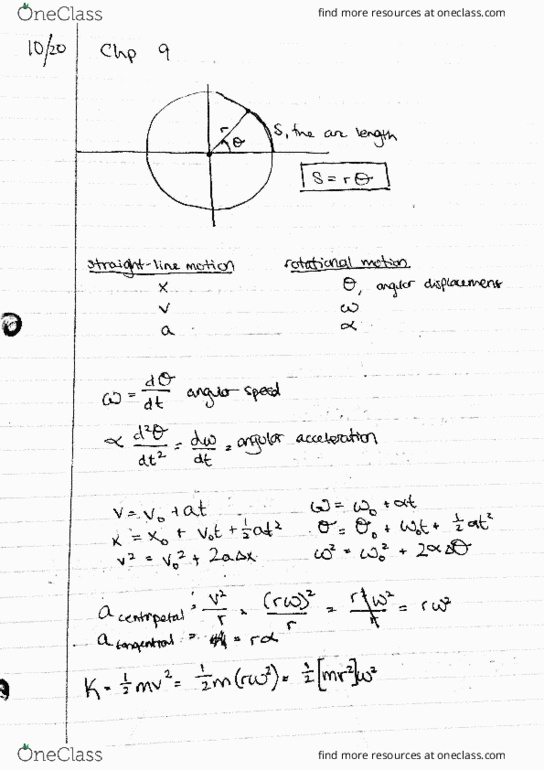 OneClass find more resources at oneclass.com
10/20 Chp 9
r
S, the arc length
θ
S = rθ
straight-line motion rotational motion
x θ, angular displacement
v ω
a α
ω = dθ/dt angular speed
α d²θ/dt² = dω/dt = angular acceleration
v = v₀ + at ω = ω₀ + αt
x = x₀ + v₀t + ½at² θ = θ₀ + ω₀t + ½αt²
v² = v₀² + 2aΔx ω² = ω₀² + 2αΔθ
a centripetal = v²/r = (rω)²/r = r²ω²/r = rω²
a tangential = = rα
K = ½mv² = ½m(rω)² = ½[mr²]ω²
OneClass find more resources at oneclass.com